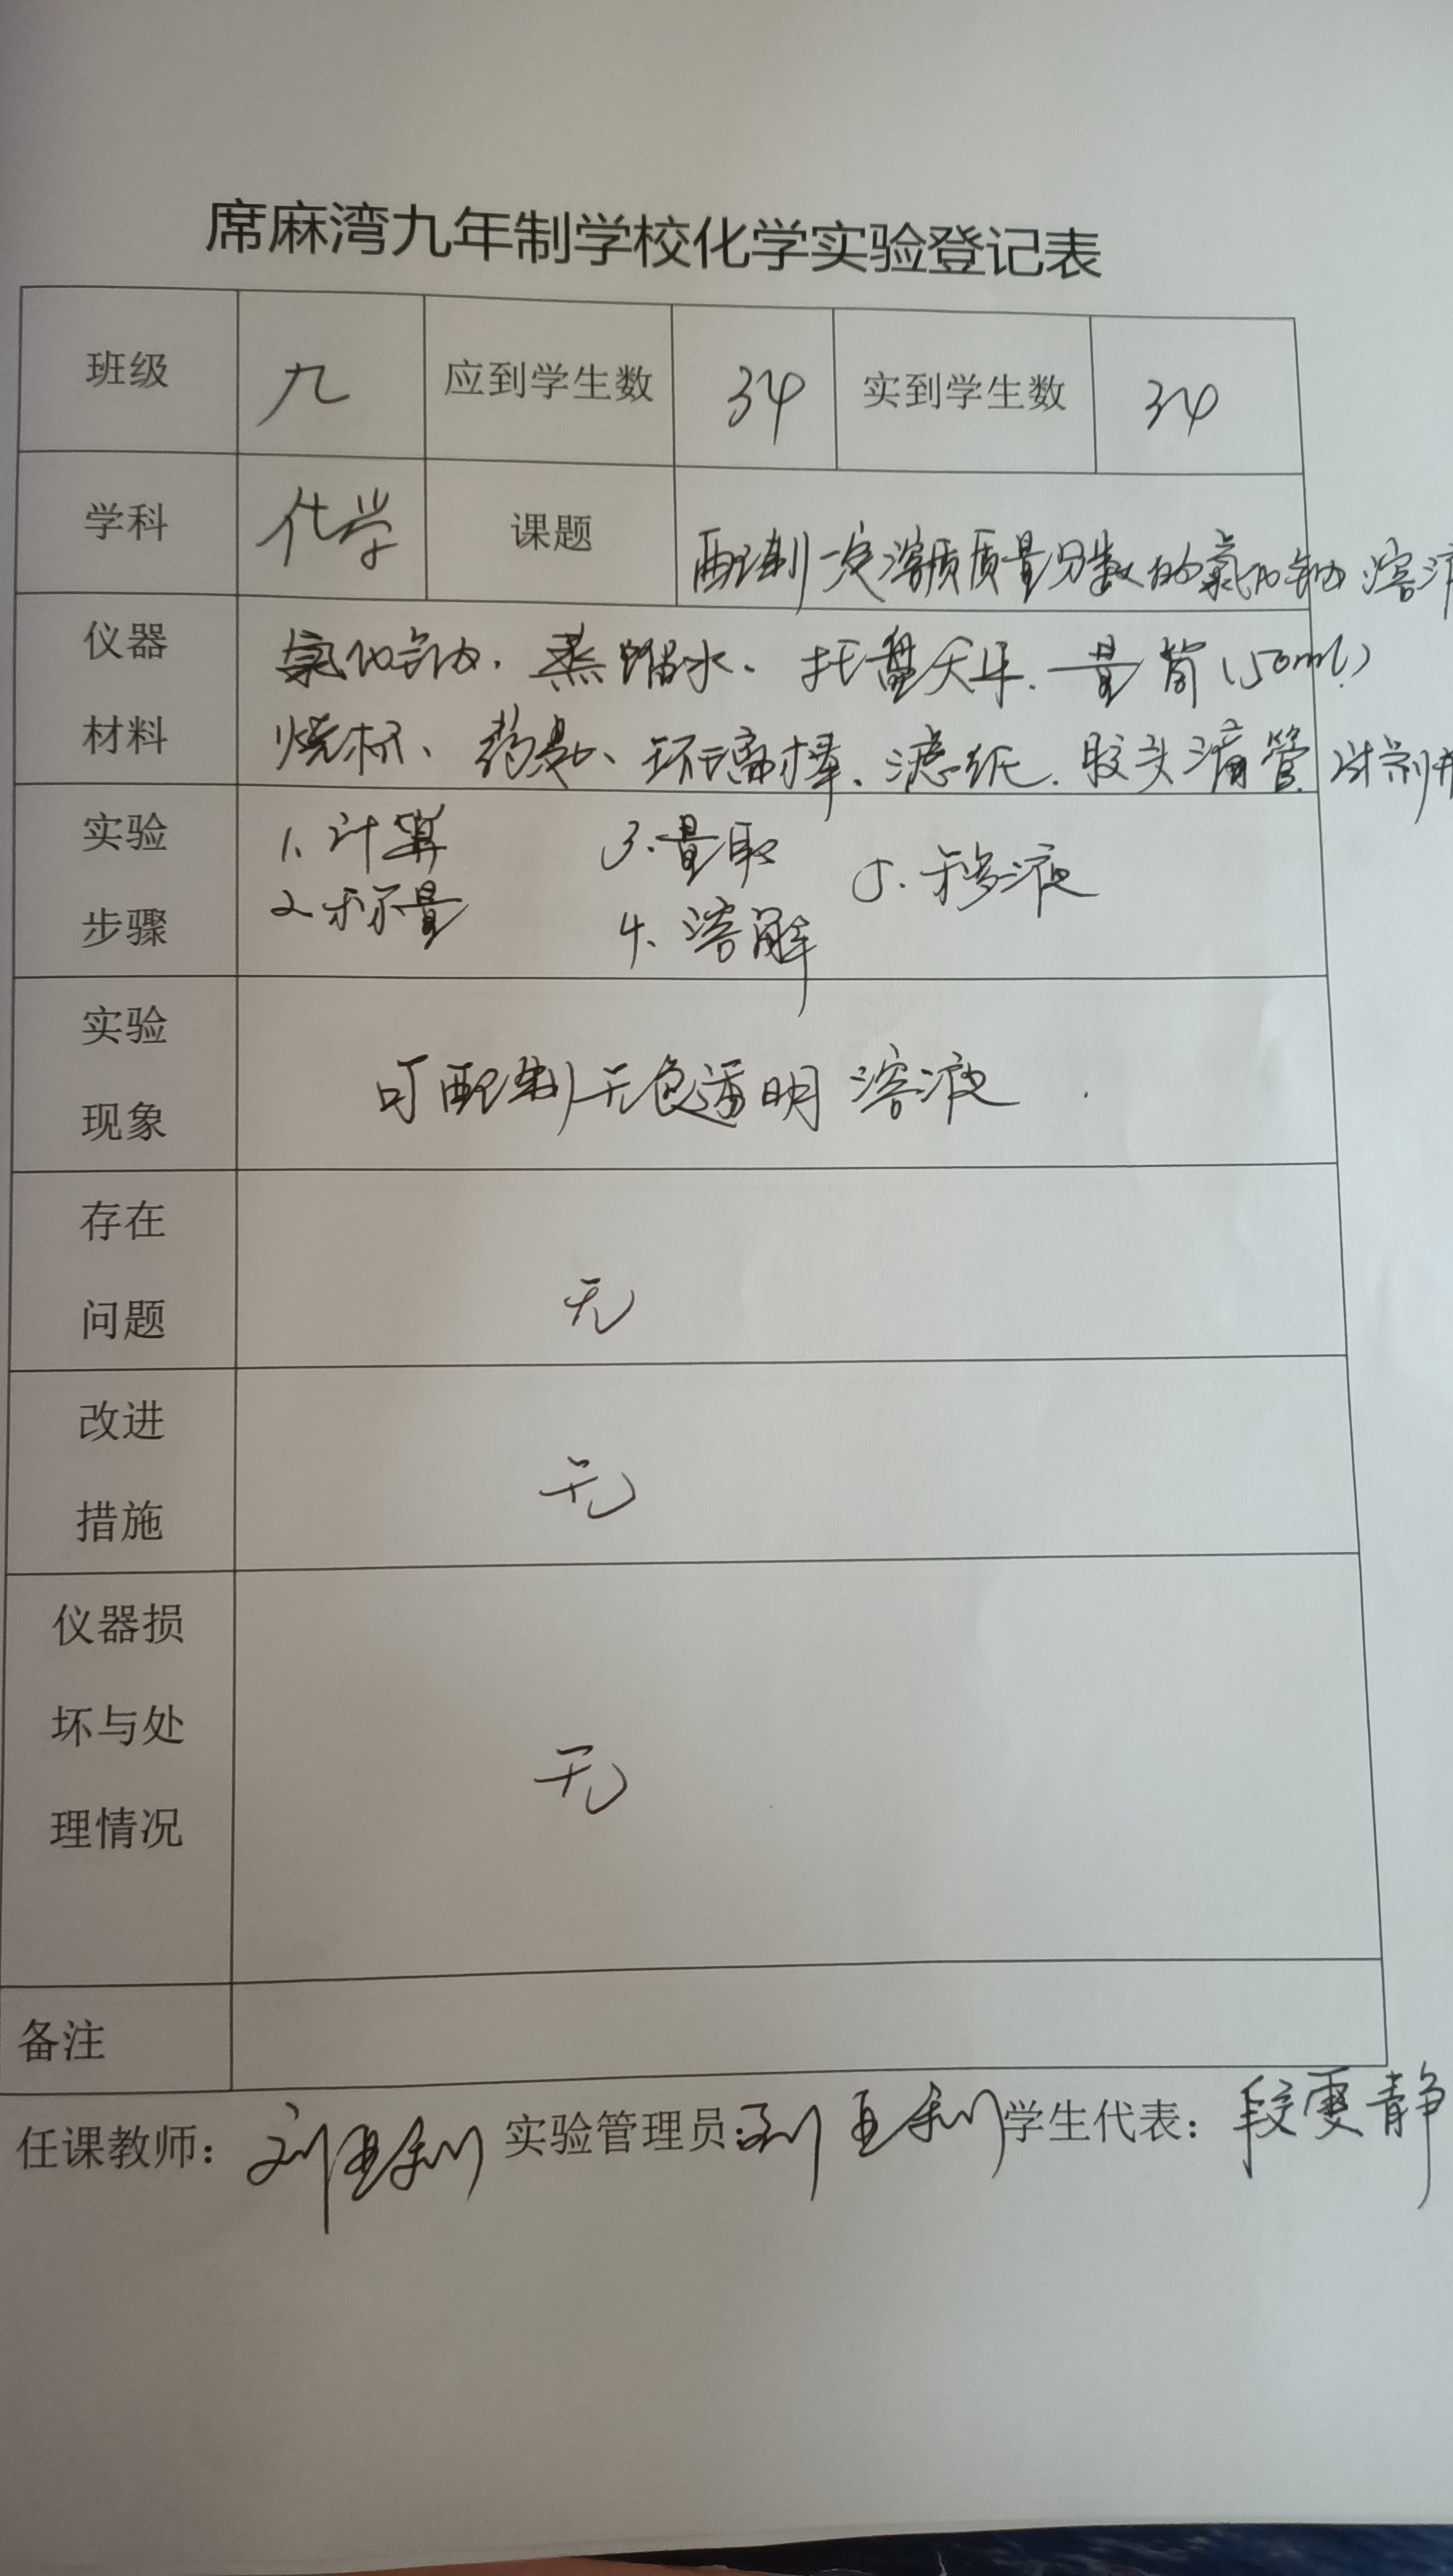 席麻湾九年制学校化学实验登记表
班级 九 应到学生数 34 实到学生数 34
学科 化学 课题 配制一定溶质质量分数的氯化钠溶
仪器材料 氯化钠、蒸馏水、托盘天平、量筒(50ml)
烧杯、药匙、玻璃棒、滤纸、胶头滴管 试剂
实验步骤 1、计算 3、量取 5、移液
2、称量 4、溶解
实验现象 可配制无色透明溶液.
存在问题 无
改进措施 无
仪器损坏与处理情况 无
备注
任课教师:刘亚利 实验管理员:刘亚利 学生代表:段雯静